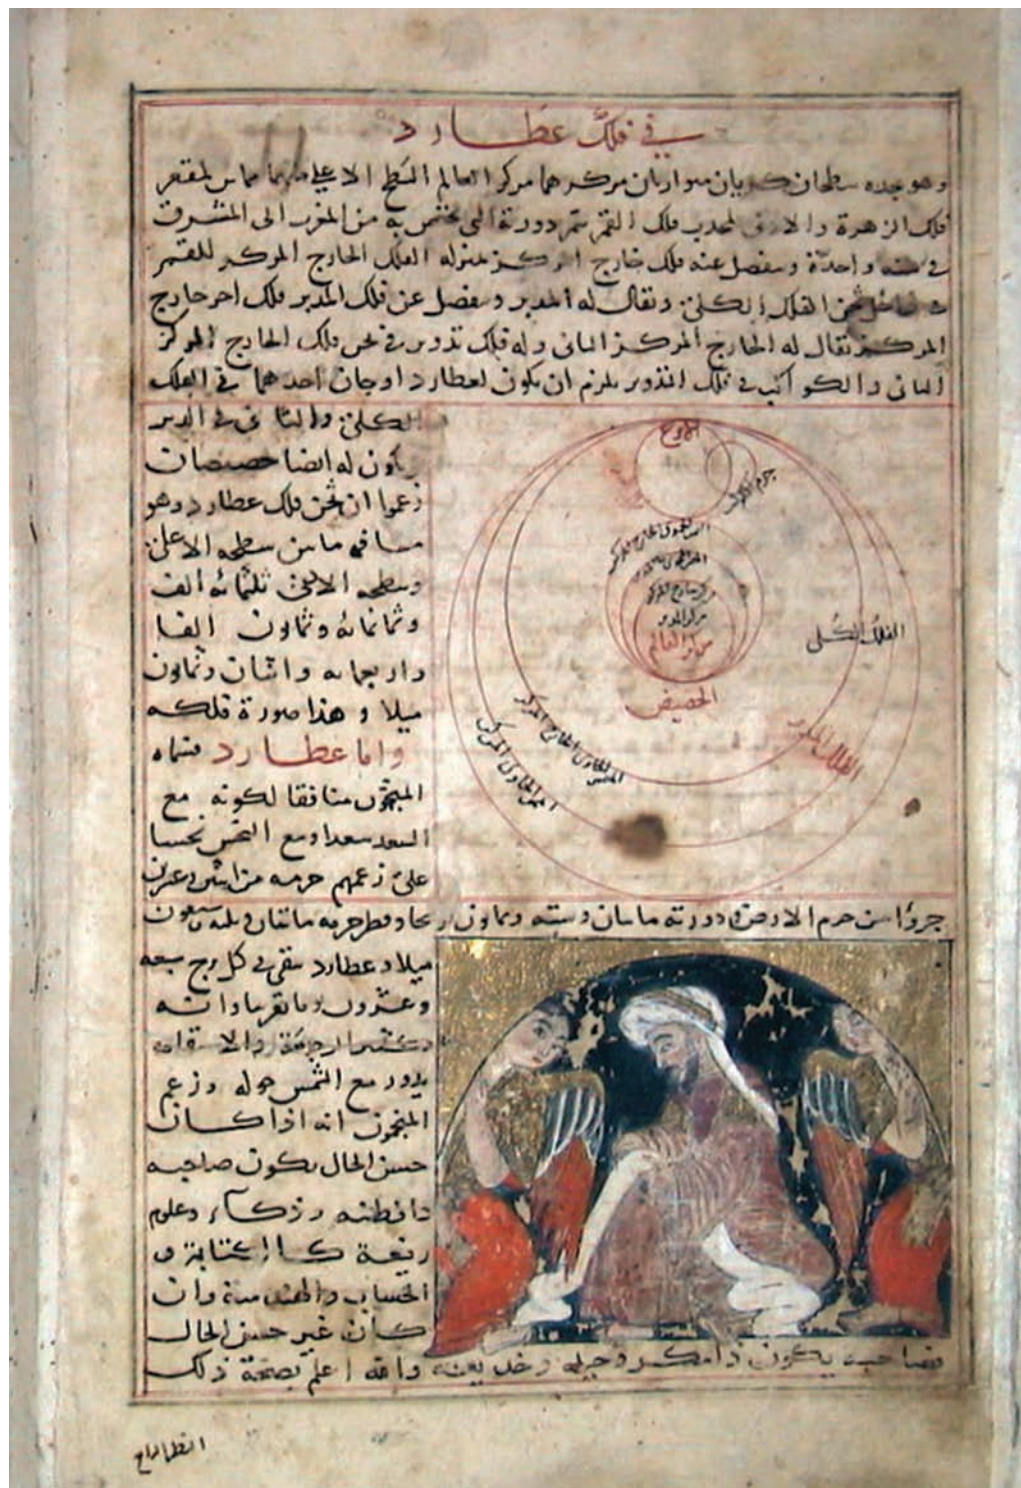 في فلك عطارد
وهو يحده سطحان كريان متوازيان مركزهما مركز العالم السطح الاعلى منهما مماس لمقعر
فلك الزهرة والادنى لمحدب فلك القمر تتم دورته التي تختص به من المغرب الى المشرق
في سنة واحدة وينفصل عنه فلك خارج المركز بمنزله الفلك الخارج المركز للقمر
في ثخن الفلك الكلي ويقال له المدير وينفصل عن فلك المدير فلك اخر خارج
المركز يقال له الخارج المركز الثاني وله فلك تدوير في ثخن فلك الخارج المركز
الثاني والكواكب في فلك التدوير يلزم ان يكون لعطارد اوجان احدهما في الفلك
الكلي والثاني في المدير
يكون له ايضا حضيضان
زعموا ان ثخن فلك عطارد وهو
مسافه ما بين سطحه الاعلى
وسطحه الادنى ثلثمائه الف
وثمانمائة وثمانون الفا
واربعمايه واثنان وثمانون
ميلا وهذا صورة فلكه
واما عطارد فسماه
المنجمون منافقا لكونه مع
السعد سعدا ومع النحس نحسا
على زعمهم جرمه من اثنين وعشرين
الاوج
جرم الكوكب
مركز الخارج المركز
مركز المدير
مركز العالم
الحضيض
الفلك الكلي
الفلك المدير
المتمم الحاوي الخارج المركز
المتمم الحاوي المركز
جزؤا من جرم الارض ودورته مايتان وسته وثمانون وقطر جرمه مائتان وثلثه وسبعون
ميلا وعطارد يبقى في كل برج سبعه
وعشرون يوما تقريبا وانه
كثير الرجعة والاستقامه
يدور مع الشمس حوله وزعم
المنجمون انه اذا كان
حسن الحال يكون صاحبه
ذا فطنه وذكاء وعلوم
رفيعة كالكتابة و
الحساب والهندسة وان
كان غير حسن الحال
فصاحبه يكون ذا مكر وحيله وخديعه والله اعلم بصحة ذلك